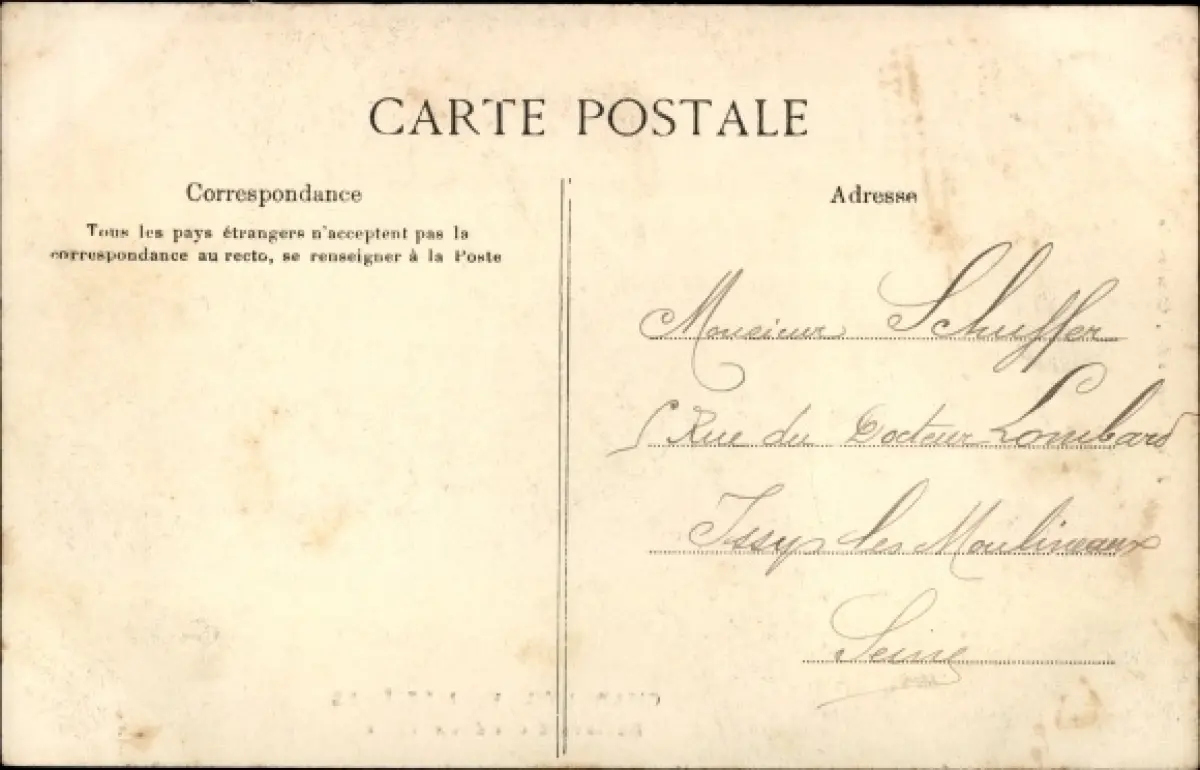 CARTE POSTALE
Correspondance
Tous les pays étrangers n'acceptent pas la
correspondance au recto, se renseigner à la Poste
Adresse
Monsieur Schuffer
5 Rue du Docteur Lombard
Issy les Moulineaux
Seine